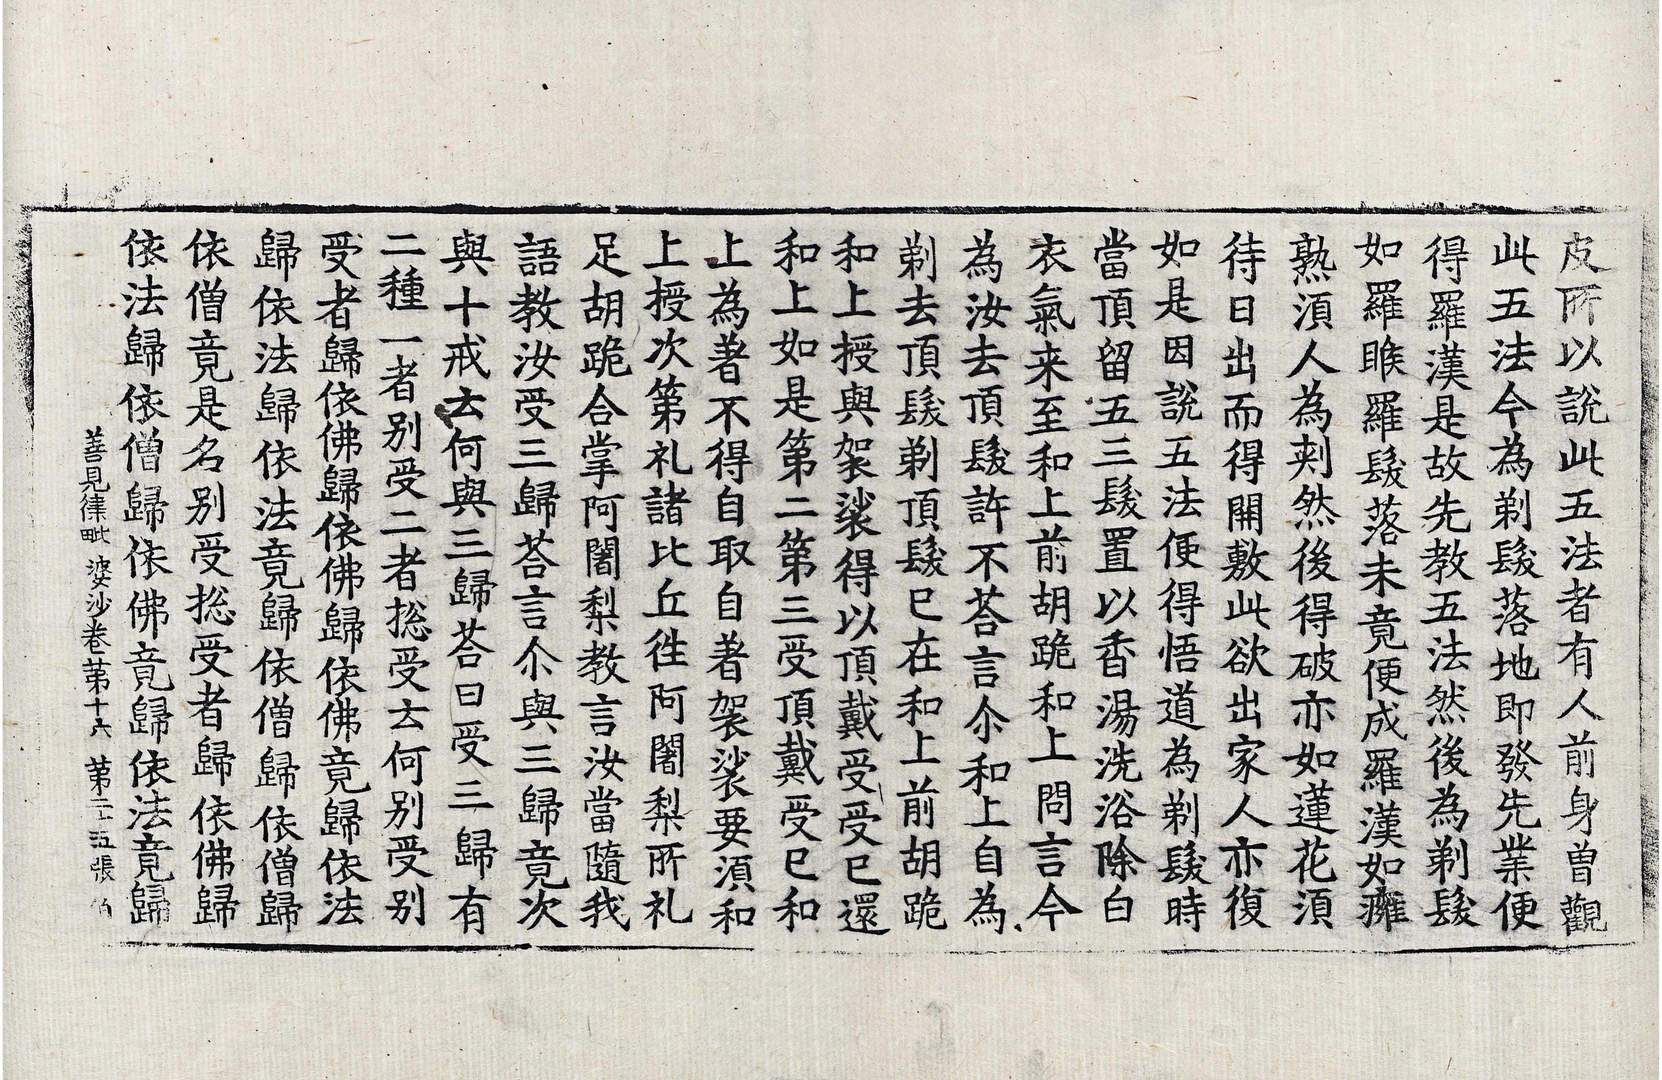 皮所以說此五法者有人前身曾觀
此五法今為剃髮落地即發先業便
得羅漢是故先教五法然後為剃髮
如羅睺羅髮落未竟便成羅漢如癰
熟須人為刺然後得破亦如蓮花須
待日出而得開敷此欲出家人亦復
如是因說五法便得悟道為剃髮時
當頂留五三髮置以香湯洗浴除白
衣氣来至和上前胡跪和上問言今
為汝去頂髮許不荅言尒和上自為
剃去頂髮剃頂髮已在和上前胡跪
和上授與袈裟得以頂戴受受已還
和上如是第二第三受頂戴受已和
上為著不得自取自著袈裟要須和
上授次第礼諸比丘徃阿闍梨所礼
足胡跪合掌阿闍梨教言汝當隨我
語教汝受三歸荅言尒與三歸竟次
與十戒云何與三歸荅曰受三歸有
二種一者別受二者捴受云何別受別
受者歸依佛歸依佛歸依佛竟歸依法
歸依法歸依法竟歸依僧歸依僧歸
依僧竟是名別受捴受者歸依佛歸
依法歸依僧歸依佛竟歸依法竟歸
善見律毗婆沙卷第十六 第二十五張 伯